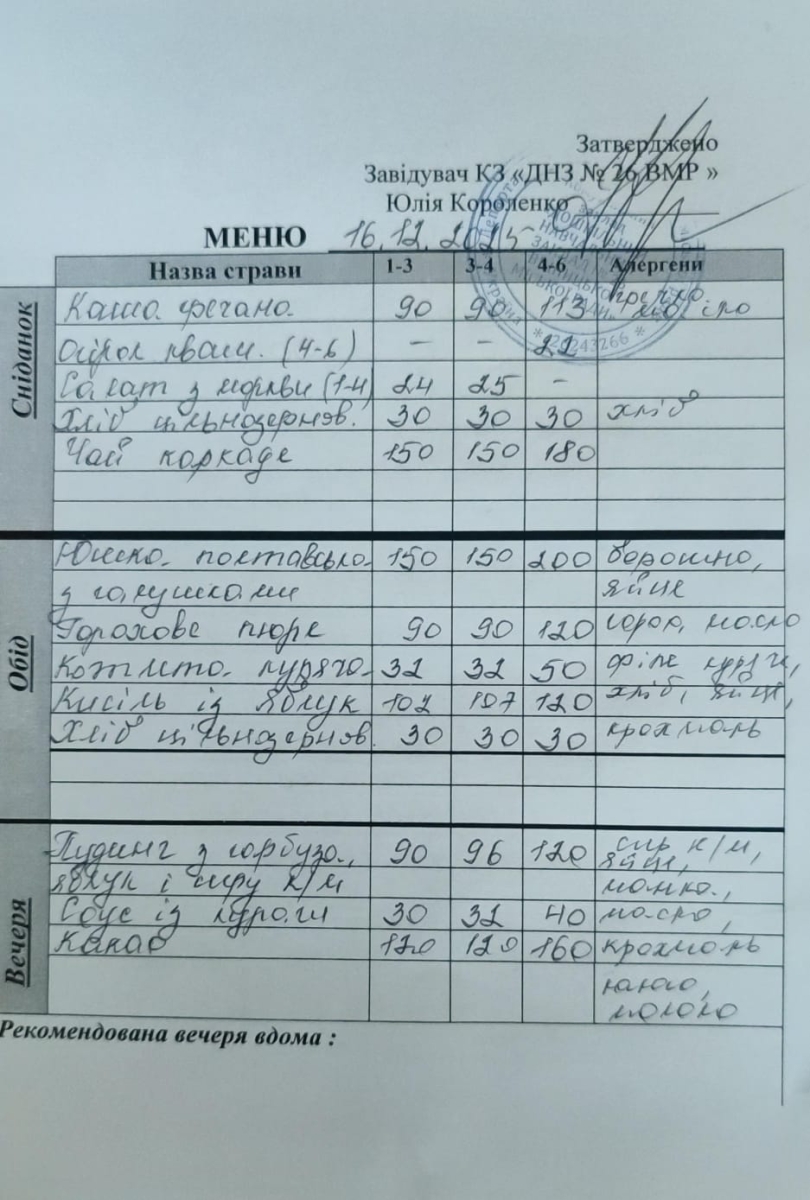 Затверджено
Завідувач КЗ «ДНЗ № 26 ВМР »
Юлія Короленко
МЕНЮ 16.12.2025
Назва страви 1-3 3-4 4-6 Алергени
Сніданок
Каша гречана 90 90 113 гречка
Огірок кваш. (4-6) – – 22
Салат з моркви (1-4) 24 25 –
Хліб цільнозернов. 30 30 30 хліб
Чай каркаде 150 150 180
Обід
Юшка полтавська 150 150 200 борошно,
з галушками яйце
Горохове пюре 90 90 120 горох, масло
Котлета куряча 32 32 50 філе куряч,
Кисіль із яблук 102 107 120 хліб, яйце,
Хліб цільнозернов. 30 30 30 крохмаль
Вечеря
Пудинг з гарбуза, 90 96 120 сир к/м, яйце,
яблук і сиру к/м манка,
Соус із кураги 30 32 40 масло,
Какао 120 120 160 крохмаль
какао,
молоко
Рекомендована вечеря вдома :